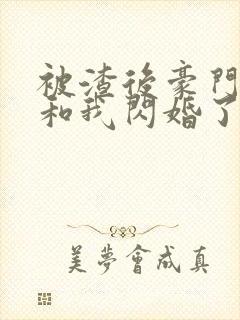 被渣後豪門
和我閃婚了
美夢會成真